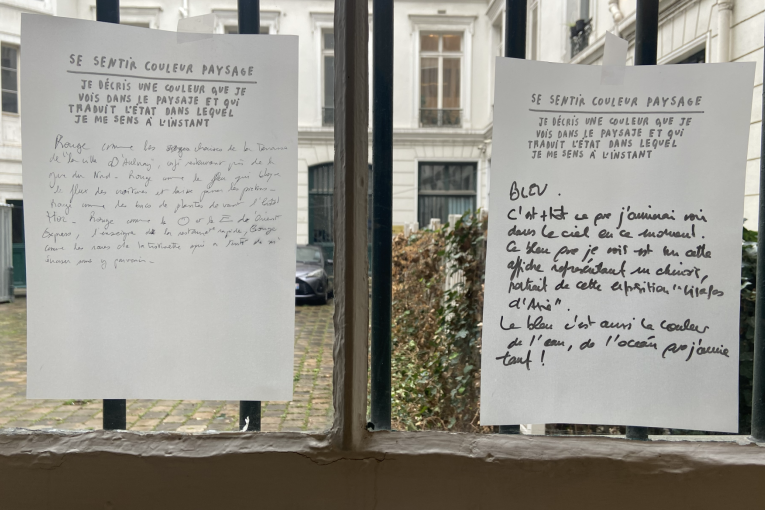 SE SENTIR COULEUR PAYSAGE
JE DÉCRIS UNE COULEUR QUE JE
VOIS DANS LE PAYSAJE ET QUI
TRADUIT L'ÉTAT DANS LEQUEL
JE ME SENS À L'INSTANT
Rouge comme les chaises de la Terrasse
de la ville D'Aulnay, café restaurant près de la
gare du Nord. Rouge comme le feu qui
le flux des voitures et laisse passer les piétons.
Rouge comme les bacs de plantes devant l'hôtel
Rouge comme le O et le E de Orient
Express, l'enseigne de la restauration rapide, Rouge
comme les roues de la trottinette qui a
SE SENTIR COULEUR PAYSAGE
JE DÉCRIS UNE COULEUR QUE JE
VOIS DANS LE PAYSAJE ET QUI
TRADUIT L'ÉTAT DANS LEQUEL
JE ME SENS À L'INSTANT
BLEU.
C'est + tôt ce que j'aimerai voir
dans le ciel en ce moment.
Ce bleu que je vois est sur cette
affiche représentant un chinois,
portrait de cette exposition "Visages
d'Asie".
Le bleu c'est aussi la couleur
de l'eau, de l'océan que j'aime
tant !